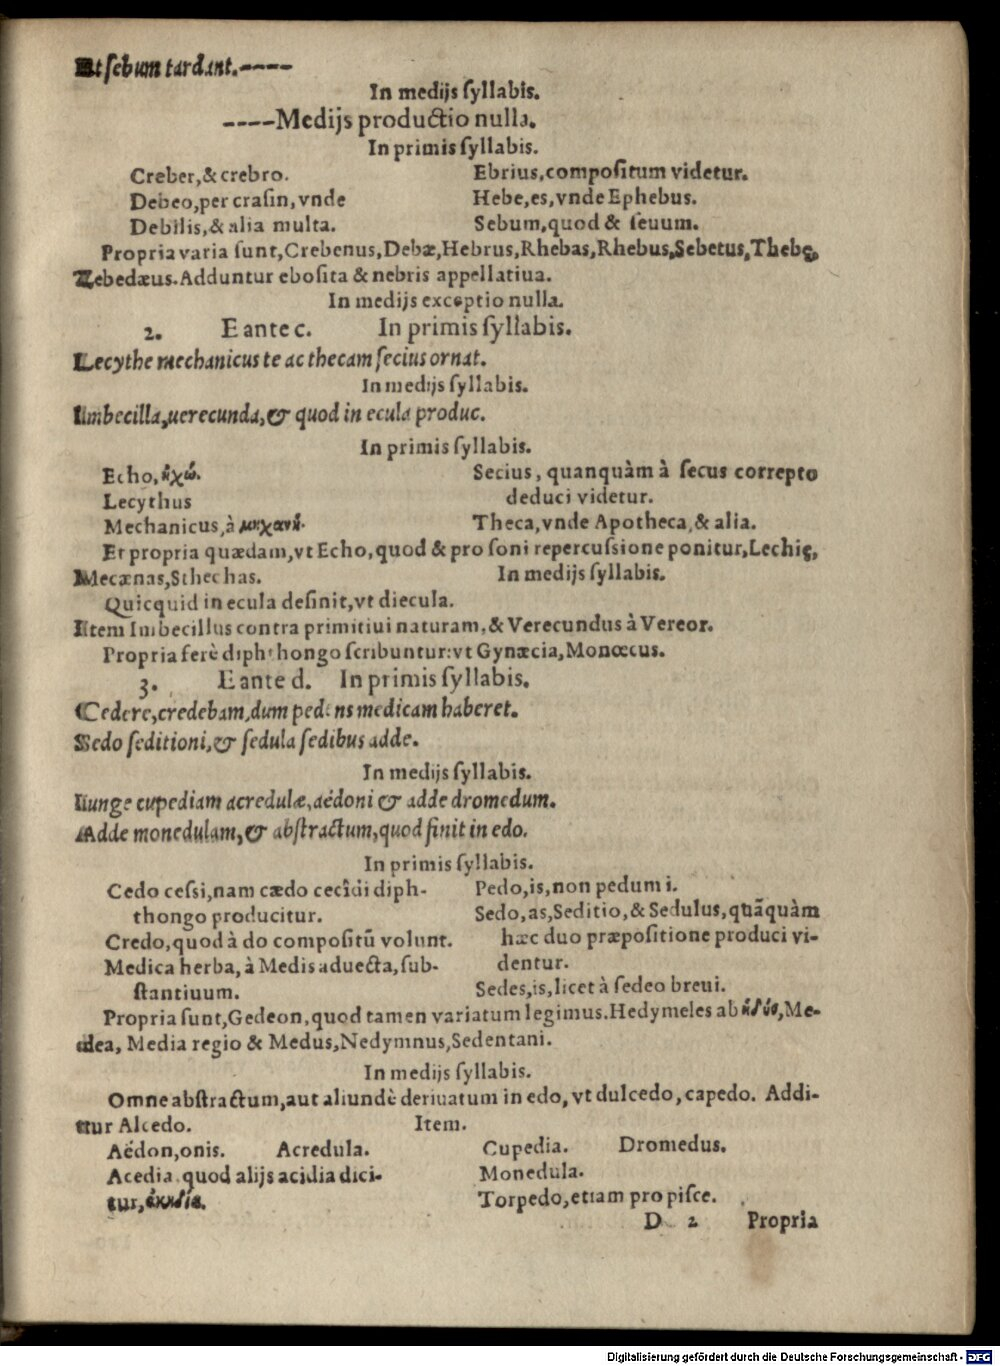 Et ſebum tardant.----
In medijs ſyllabis.
----Medijs productio nulla.
In primis ſyllabis.
Creber,& crebro.
Debeo,per craſin,vnde
Debilis,& alia multa.
Ebrius,compoſitum videtur.
Hebe,es,vnde Ephebus.
Sebum,quod & ſeuum.
Propria varia ſunt,Crebenus,Debæ,Hebrus,Rhebas,Rhebus,Sebetus,Thebę,
Zebedæus.Adduntur eboſita & nebris appellatiua.
In medijs exceptio nulla.
2. E ante c. In primis ſyllabis.
Lecythe mechanicus te ac thecam ſecius ornat.
In medijs ſyllabis.
Imbecilla,uerecunda,& quod in ecula produc.
In primis ſyllabis.
Echo,ἠχώ.
Lecythus
Mechanicus,à μηχανή.
Secius, quanquàm à ſecus correpto
deduci videtur.
Theca,vnde Apotheca,& alia.
Et propria quædam,vt Echo,quod & pro ſoni repercuſsione ponitur,Lechię,
Mecænas,Sthechas.
In medijs ſyllabis.
Quicquid in ecula deſinit,vt diecula.
Item Imbecillus contra primitiui naturam,& Verecundus à Vereor.
Propria ferè diphthongo ſcribuntur:vt Gynæcia,Monœcus.
3. E ante d. In primis ſyllabis.
Cedere,credebam,dum pedens medicam haberet.
Sedo ſeditioni,& ſedula ſedibus adde.
In medijs ſyllabis.
Iunge cupediam acredulæ,aëdoni & adde dromedum.
Adde monedulam,& abſtractum,quod finit in edo.
In primis ſyllabis.
Cedo ceſsi,nam cædo cecîdi diph-
thongo producitur.
Credo,quod à do compoſitū volunt.
Medica herba, à Medis aduecta,ſub-
ſtantiuum.
Pedo,is,non pedum i.
Sedo,as,Seditio,& Sedulus,quāquàm
hæc duo præpoſitione produci vi-
dentur.
Sedes,is,licet à ſedeo breui.
Propria ſunt,Gedeon,quod tamen variatum legimus.Hedymeles ab ἡδύς,Me-
dea, Media regio & Medus,Nedymnus,Sedentani.
In medijs ſyllabis.
Omne abſtractum,aut aliundè deriuatum in edo, vt dulcedo, capedo. Addi-
tur Alcedo.
Item.
Aëdon,onis. Acredula.
Acedia quod alijs acidia dici-
tur,
Cupedia. Dromedus.
Monedula.
Torpedo,etiam pro piſce.
D 2 Propria
Digitalisierung gefördert durch die Deutsche Forschungsgemeinschaft - DFG